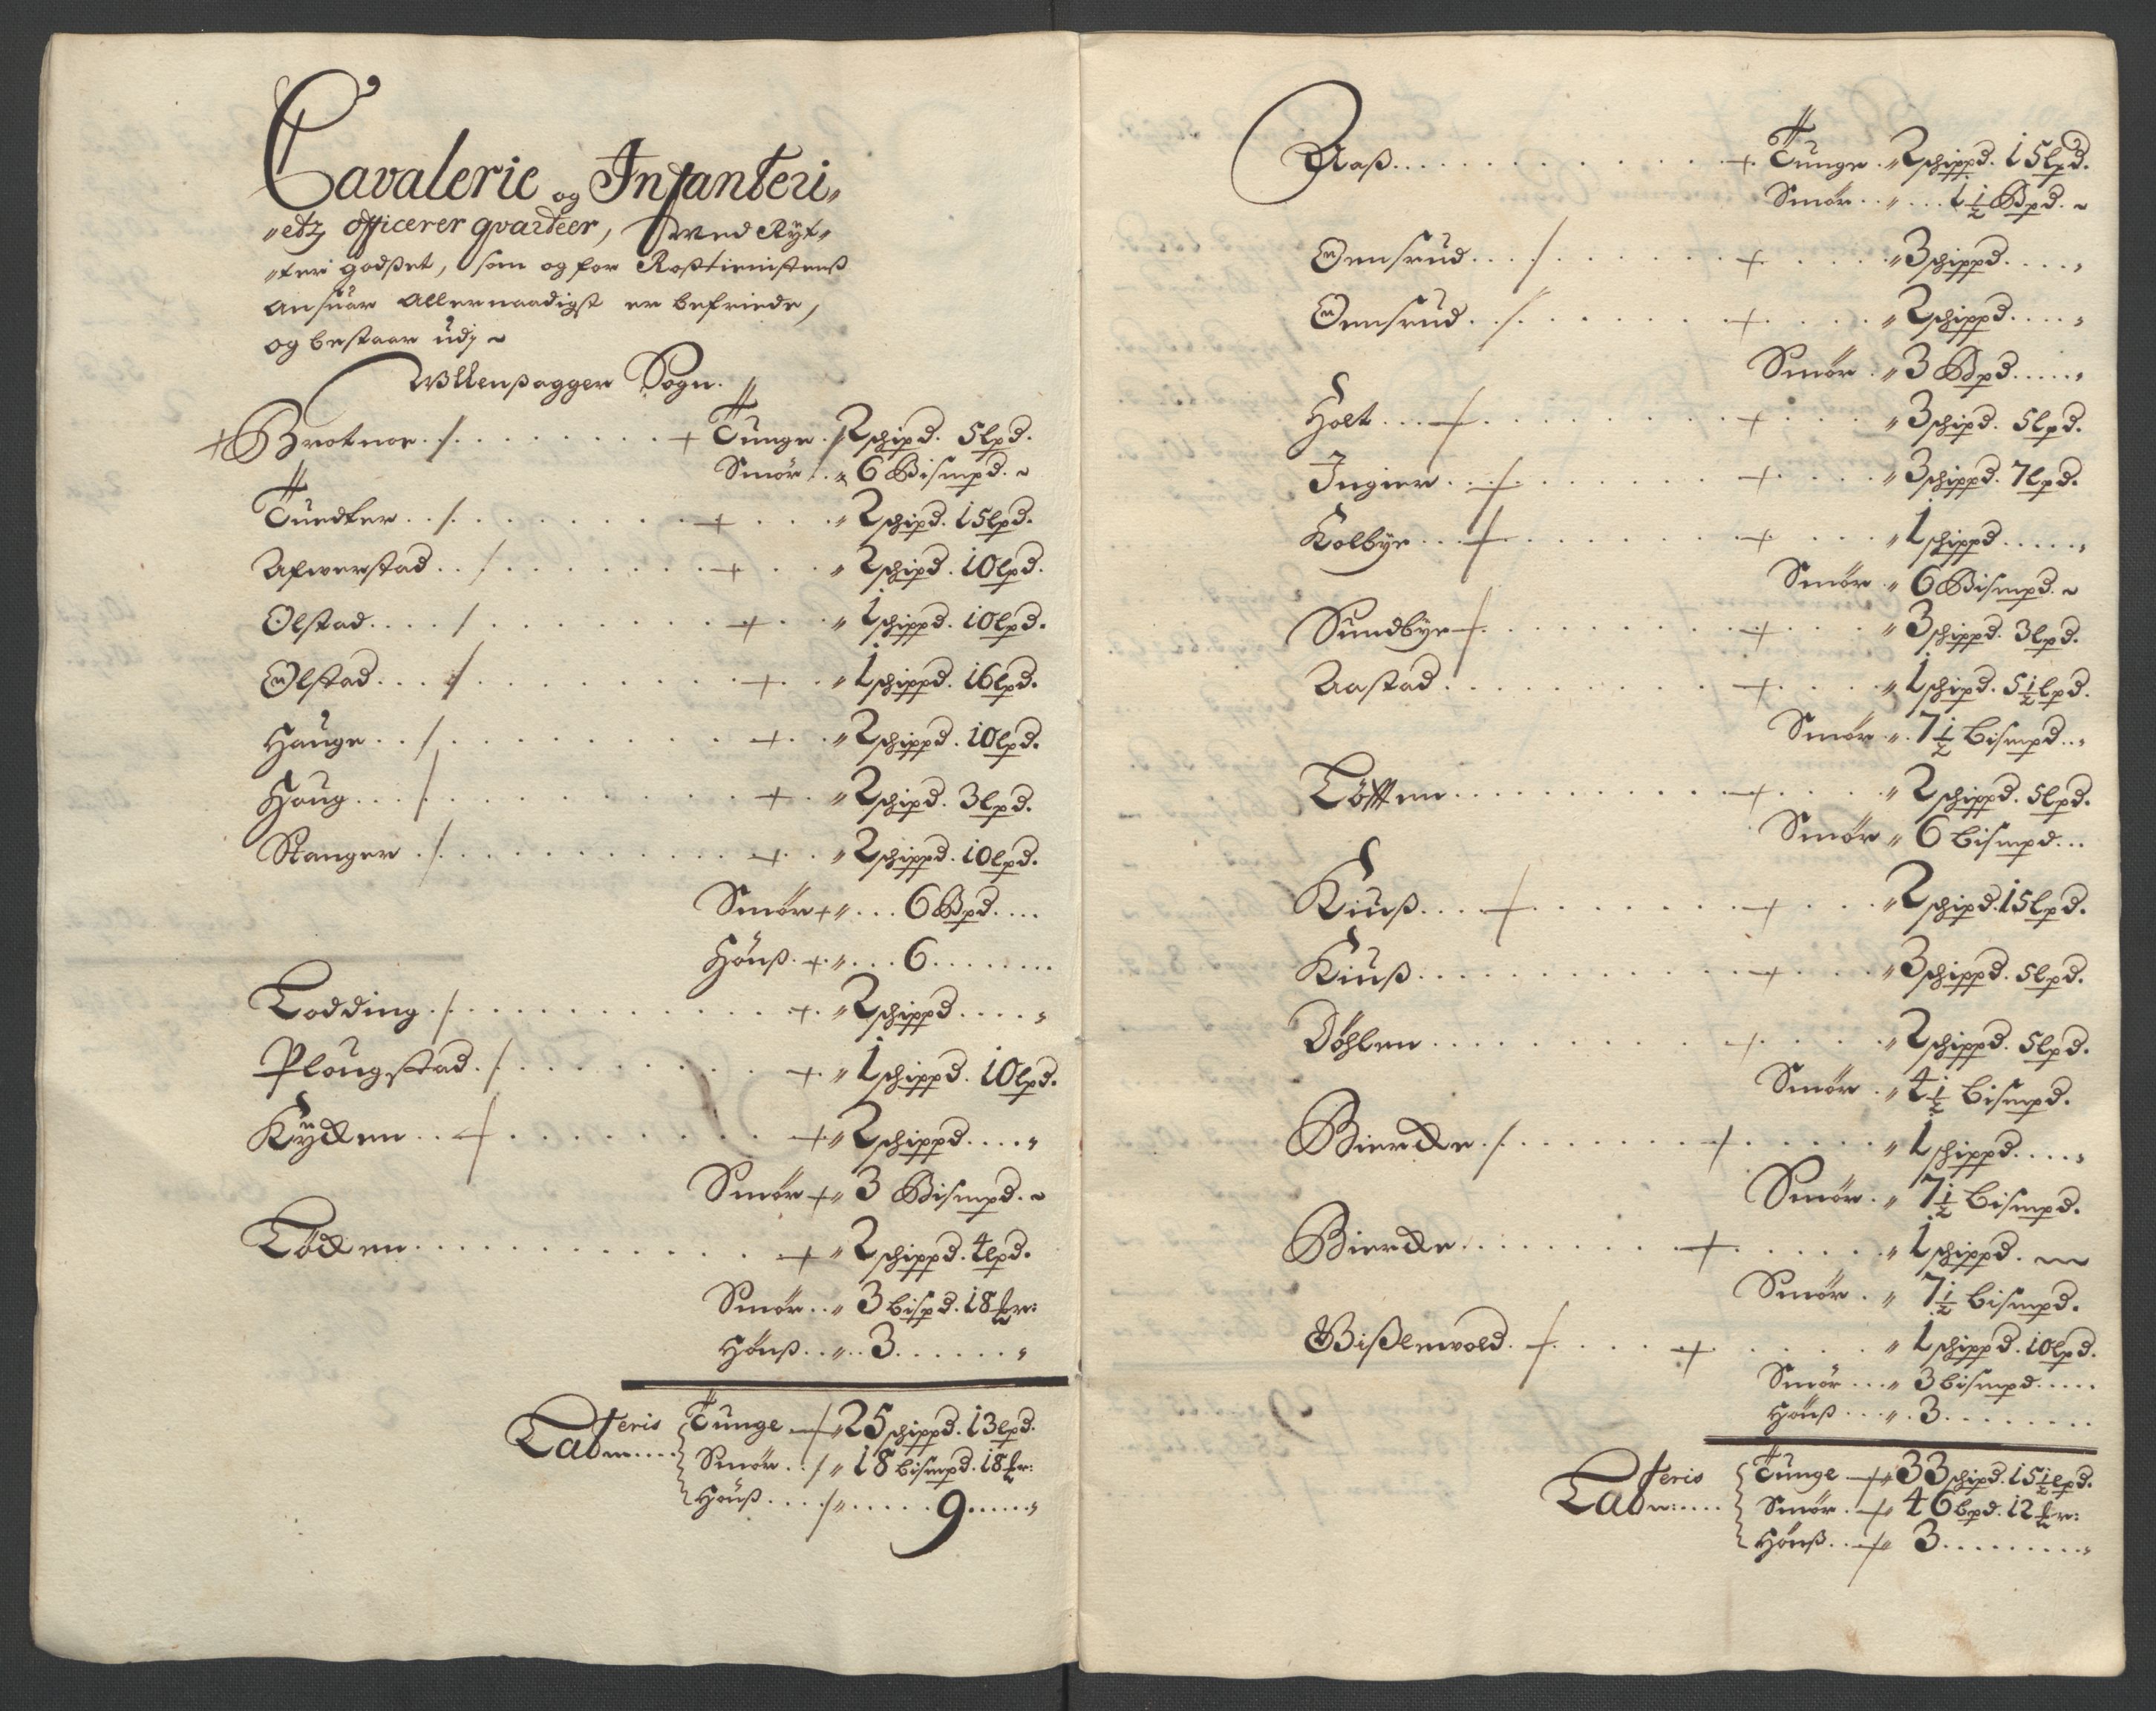 Cavalerie og Infanteri„
„etz officerer qvarteer, wed Rÿt„
„teri godßet, som og for Roßtienistenß
Ansuar Allernaadigst er befriede,
og bestaar udj ~
Wllenßagger Sogn.
+ Brotnoe ./. . . . . . . + Tunge . 2 schipd. 5 lpd.
Smör . . „ 6 Bismpd. ~
Tuedter . ./. . . . . . . + . . . „ 2 schipd. 15 lpd.
Afwerstad . . / . . . . . . . + . . „ 2 schipd. 10 lpd.
Olstad . . . . / . . . . . . . + . . „ 1 schippd. 10 lpd.
Olstad . . . / . . . . . . . . + . . „ 1 schippd. 16 lpd.
Hauge . . / . . . . . . . . + . . „ 2 schippd. 10 lpd.
Haug . . . / . . . . . . . . . + . „ 2 schipd. 3 lpd.
Stanger . / . . . . . . . . . + . . „ 2 schippd. 10 lpd.
Smör + „ . . . 6 Bpd. . . .
Hönß . + „ . . . 6 . . . . . . .
Lodding . / . . . . . . . . . + . „ 2 schippd. . . . „
Plougstad . / . . . . . . . . + . „ 1 schippd. 10 lpd.
Kyken . . + . . . . . . . . + „ 2 schippd. . . . „
Smör + „ 3 Bismpd. ~
Löken . . . . . . . . . . . . + „ 2 schippd. 4 lpd.
Smör . . „ 3 bispd. 18 mr:
Hönß . . „ . . 3 . . . . . . „
Lateris Tunge + „ 25 schippd. 13 lpd.
Smör . : / „ 18 bismpd. 18 mr:
Hönß . . . . / „ . . . . . 9 . . . . . „
Aaß . . . . . . . . . . . . +. Tunge . „ 2 schippd. 15 lpd.
Smör . . „ . . . 1 1/2 Bpd. ~
Oensrud . . . / . . . . . . + . . . . . „ 3 schippd. . . . „
Oensrud . . / . . . . . . + . . . . „ 2 schippd. . . . „
Smör . „ 3 Bpd. . . . . „
Holt . . . + . . . . . . . . + . . . . „ 3 schipd. 5 lpd.
Ingier . . + . . . . . . . + . . . . „ 3 schippd. 7 lpd.
Kolbye . . . + . . . . . . . + . . . . „ 1 schippd. . . . . „
Smör . „ 6 Bismpd. ~
Sundbye + . . . . . . . . + . . . . „ 3 schippd. 3 lpd.
Aastad . . . . . . . . . . + . . . . „ 1 schipd. 5 1/2 lpd.
Smör . „ . 7 1/2 bismpd. . „
Lötten . . . . . . . . . . + . . . . „ 2 schippd. 5 lpd.
Smör „ 6 bismpd. . .
Kiuß . . . + . . . . . . . + . . . „ 2 schipd. 15 lpd.
Kiuß . . . . . . . . . . . + . . . . „ 3 schippd. 5 lpd.
Döhlen . . . . . . . . . . + . . . . „ 2 schippd. 5 lpd.
Smör . „ 4 1/2 bismpd.
Bierke . / . . . . . . . + . . . . . „ 1 schippd. . . . „
Smör . „ 7 1/2 bismpd.
Bierke . . . . . . . . + . . . . . „ 1 schippd. ~
Smör . „ 7 1/2 bismpd.
Gißlewold . + . . . . + . . . . . „ 1 schippd. 10 lpd.
Smör . . . „ 3 bismpd. . . . .
Hönß . . . „ . 3 . . . . . . . .
Lateris Tunge + „ 33 schipd. 15 1/2 lpd.
Smör . + „ 46 bpd. 12 mr:
Hönß . . + „ 3 . . . . . . . . . „